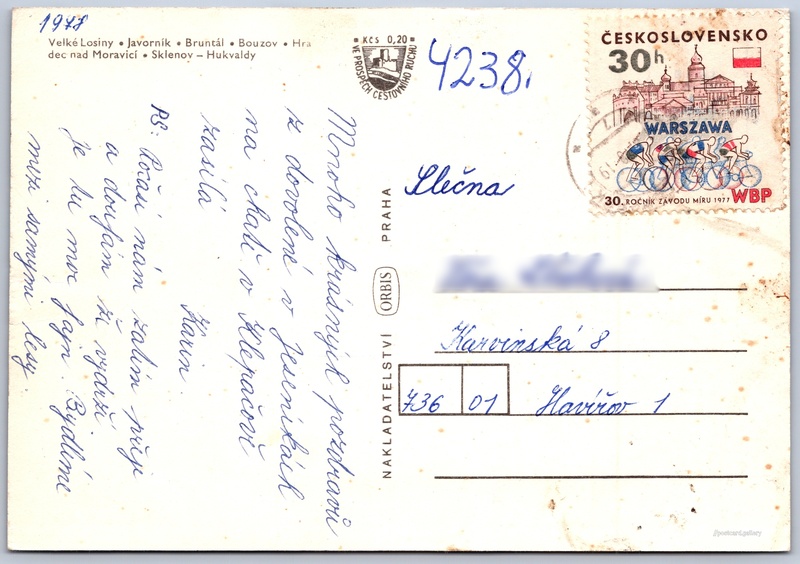 1978
Velké Losiny • Javorník • Bruntál • Bouzov • Hra
dec nad Moravicí • Sklenov – Hukvaldy
KčS 0,20
VE PROSPĚCH CESTOVNÍHO RUCHU
4238.
ČESKOSLOVENSKO
30h
WARSZAWA
30. ROČNÍK ZÁVODU MÍRU 1977 WBP
Mnoho krásných pozdravů
z dovolené v Jeseníkách
na chatě v Klepáčově
zasílá
Karin
PS: Počasí nám zatím přeje
a doufám že vydrží
je tu moc fajn. Bydlíme
mezi samými lesy
NAKLADATELSTVÍ ORBIS PRAHA
Slečna
Karvinská 8
736 01 Havířov 1